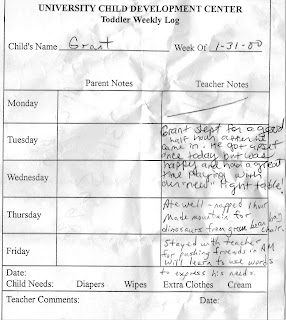 UNIVERSITY CHILD DEVELOPMENT CENTER
Toddler Weekly Log
Child's Name Grant Week Of 1-31-00
Parent Notes Teacher Notes
Monday
Tuesday
Grant slept for a good
half hour after he
came in. He got upset
once today but was
happy and had a great
time playing with
our "new" light table!
Wednesday
Thursday
Ate well - napped 1 hour
Made mountain for
dinosaurs from green bean bag
chair.
Friday
Stayed with teacher
for pushing friends in AM
Will learn to use words
to express his needs.
Date:
Child Needs: Diapers Wipes Extra Clothes Cream
Teacher Comments: Date: